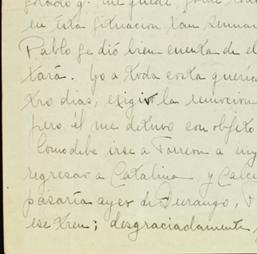 me quedé, jo
en esta situacion tan
Pablo se dió buen cuenta de el
tará. Yo a toda costa quería
tro dias, exigir la remocion
pero él me detuvo con objeto
Como debe irse a Torreon a
regresar a Catalina y
pasaría ayer de Durango,
ese tren; desgraciadamente,